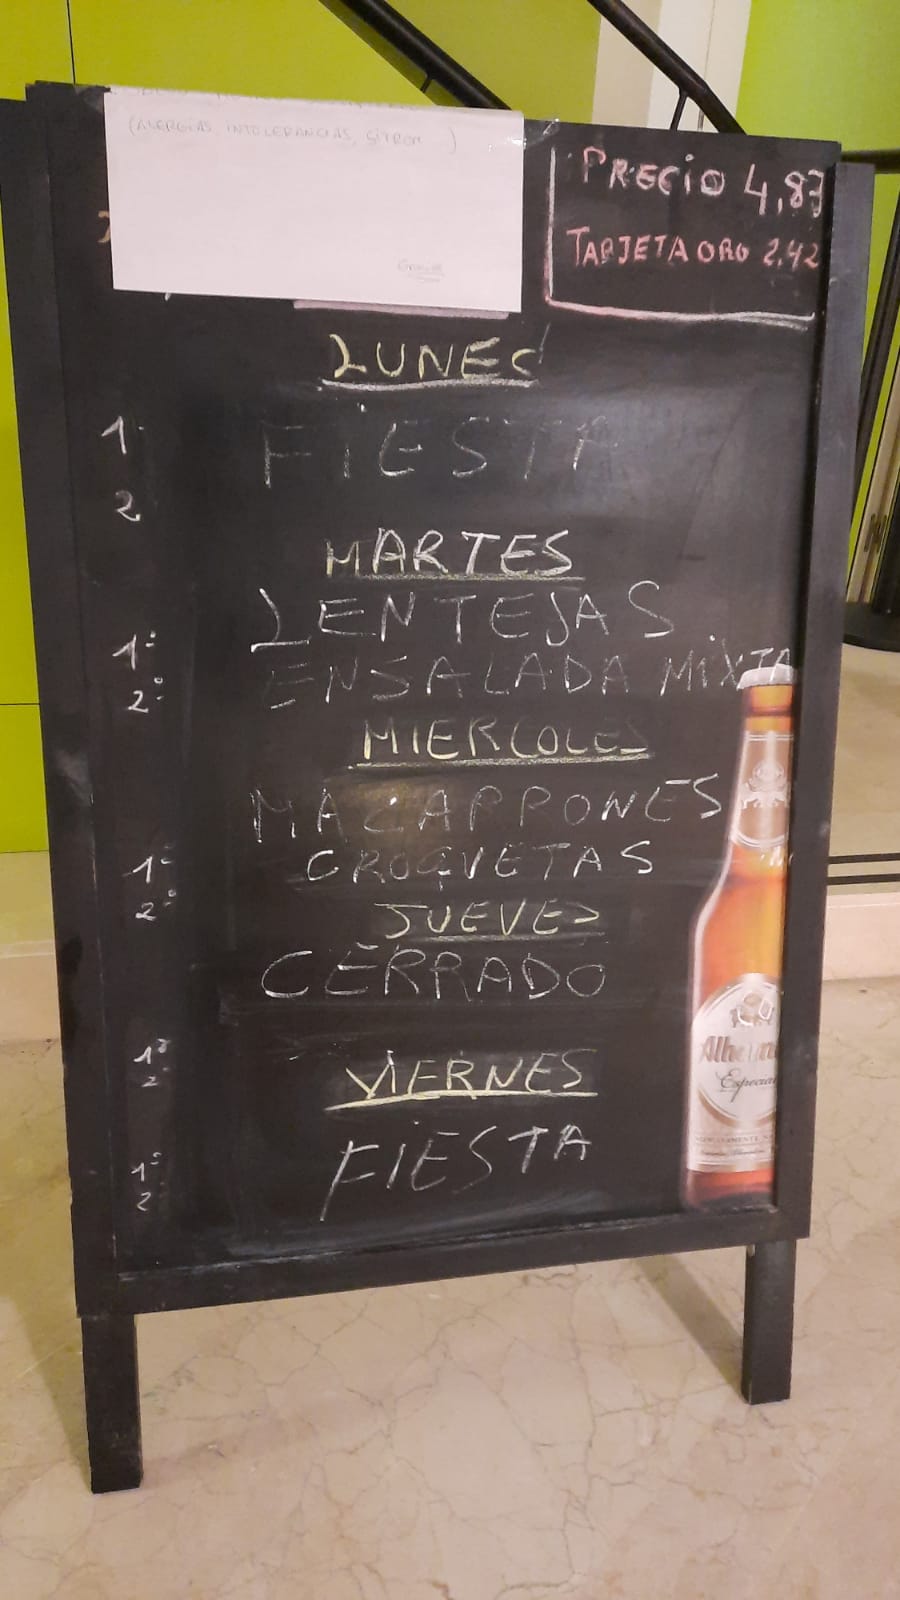 (ALERGIAS, INTOLERANCIAS, SITROM )
PRECIO 4,87
TARJETA ORO 2,42
LUNES
1- FIESTA
2
MARTES
1º LENTEJAS
2º ENSALADA MIXTA
MIERCOLES
1º MACARRONES
2º CROQUETAS
JUEVES
CERRADO
1º
2
VIERNES
FIESTA
1º
2
Alhambra
Especial